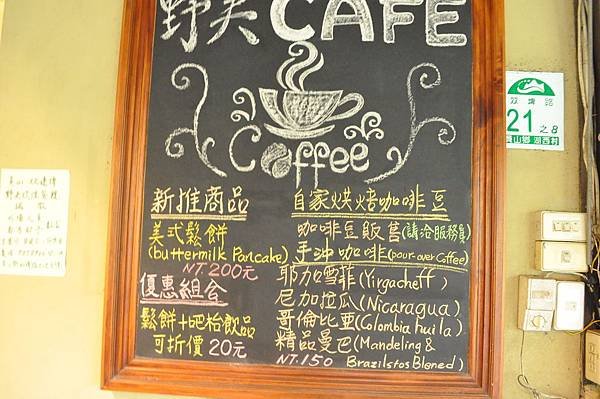 野夫CAFE
Coffee
新推商品
美式鬆餅
(buttermilk Pancake)
NT.200元
優惠組合
鬆餅+吧枱飲品
可折價20元
自家烘焙咖啡豆
咖啡豆販售(請洽服務員)
手沖咖啡(pour-over Coffee)
耶加雪菲(Yirgacheff)
尼加拉瓜(Nicaragua)
哥倫比亞(Colombia huila)
精品曼巴(Mandeling &
NT.150 Brazilstos Blened)
21之8